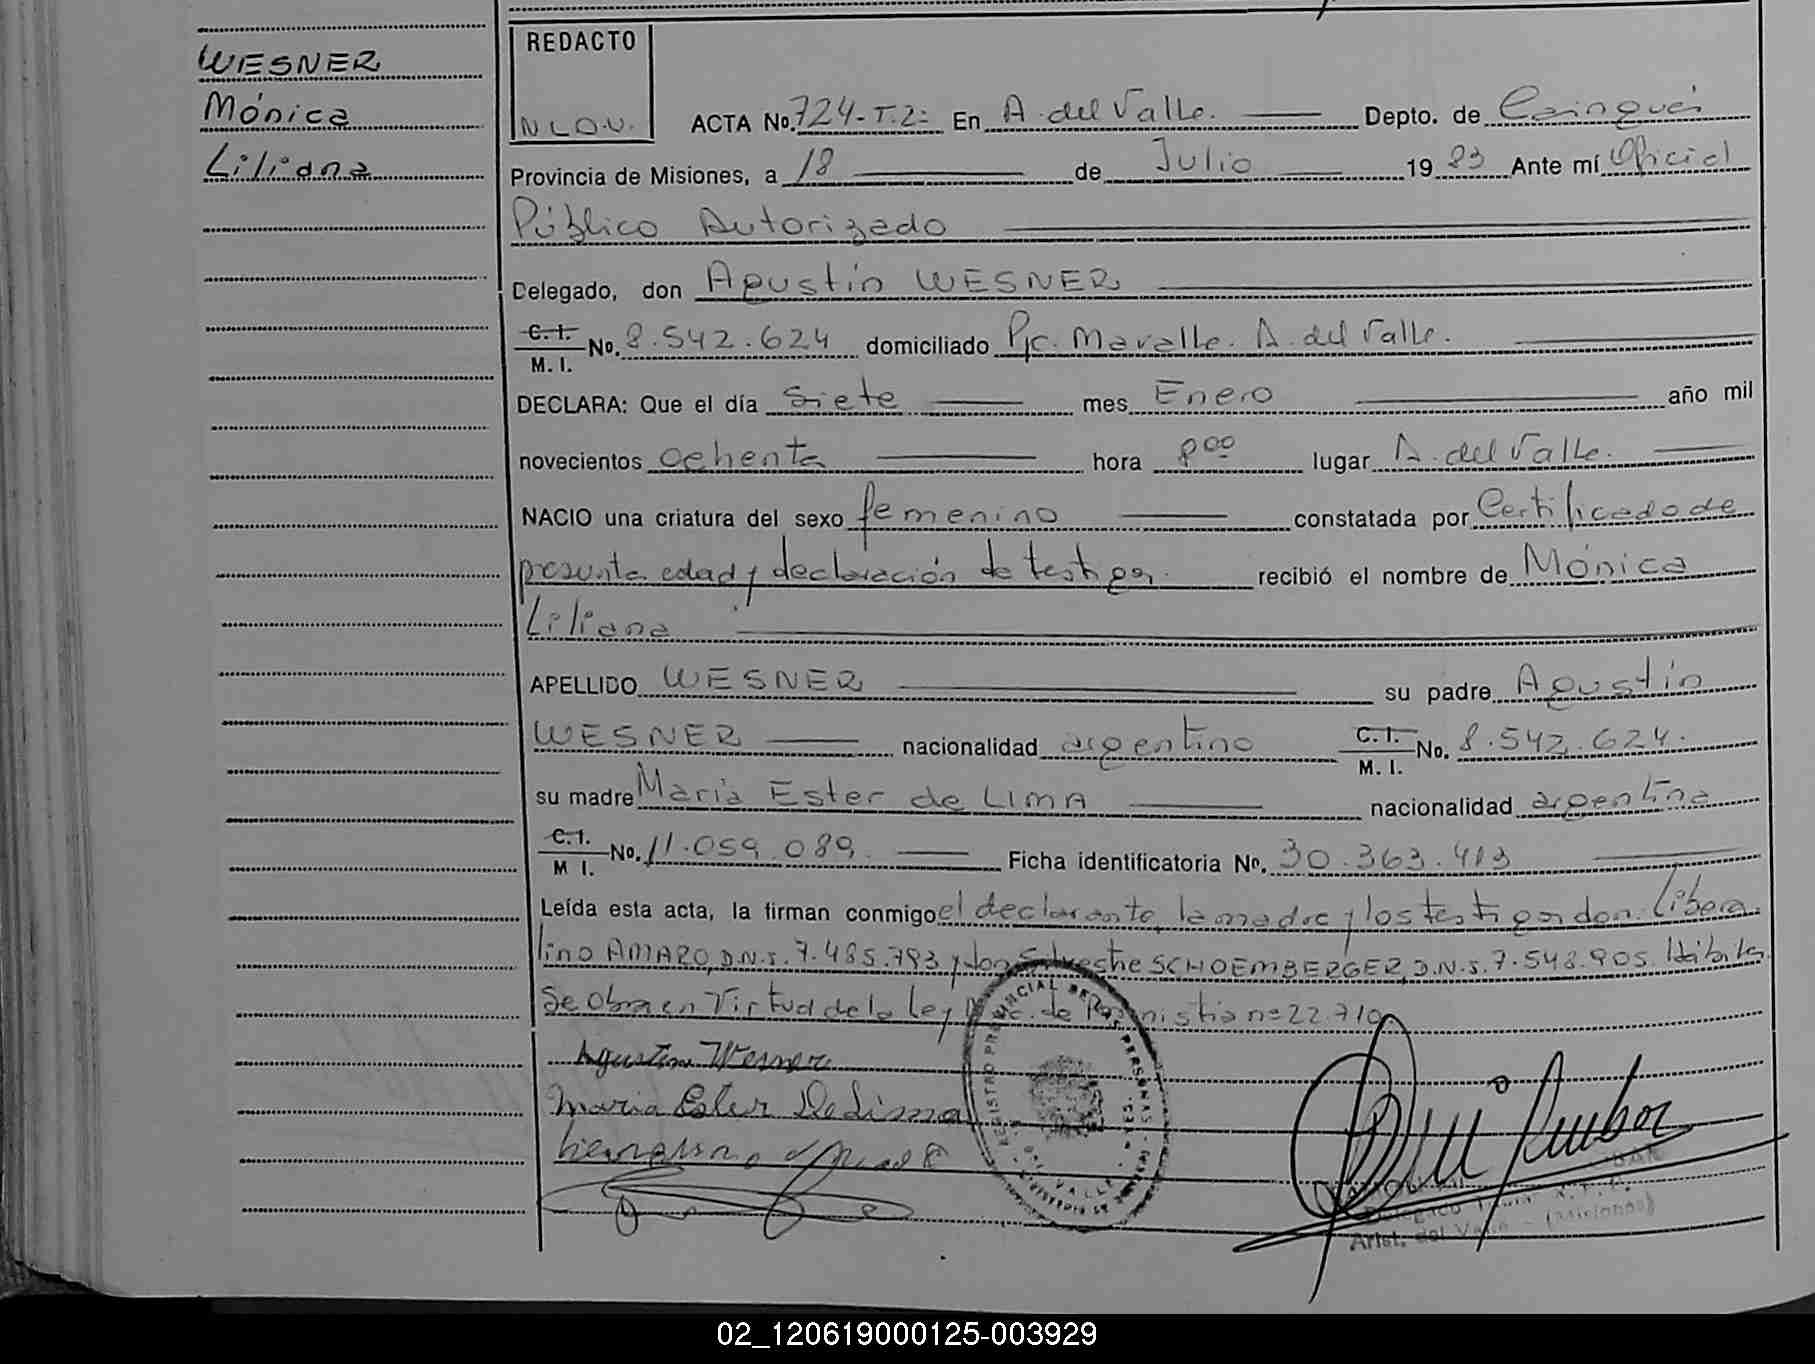 WESNER
Mónica
Liliana
REDACTO
N.L.O.V.
ACTA No. 724-T.2: En A. del Valle. Depto. de Cainguás
Provincia de Misiones, a 18 de Julio 1983 Ante mí Oficial
Público Autorizado
Delegado, don Agustín WESNER
C.I. M.I. No. 8.542.624 domiciliado Pje. Mavalle. A. del Valle.
DECLARA: Que el día siete mes Enero año mil
novecientos ochenta hora 8 00 lugar A. del Valle.
NACIO una criatura del sexo femenino constatada por Certificado de
presunta edad y declaración de testigos. recibió el nombre de Mónica
Liliana
APELLIDO WESNER su padre Agustín
WESNER nacionalidad argentino C.I. M.I. No. 8.542.624.
su madre María Ester de LIMA nacionalidad argentina
C.I. M I. No. 11.059.089. Ficha identificatoria No. 30.363.413
Leída esta acta, la firman conmigo el declarante, la madre y los testigos don Libera
lino AMARO, D.N.I. 7.485.793 y don Silvestre SCHOEMBERGER, D.N.I. 7.548.905. Hábiles
Se obra en Virtud de la Ley Nac. de Amnistía nº 22.710
Agustin Wesner
Maria Ester De Lima
REGISTRO PROVINCIAL DE LAS PERSONAS
DEL VALLE
Arist. del Valle - (Misiones)
02_120619000125-003929